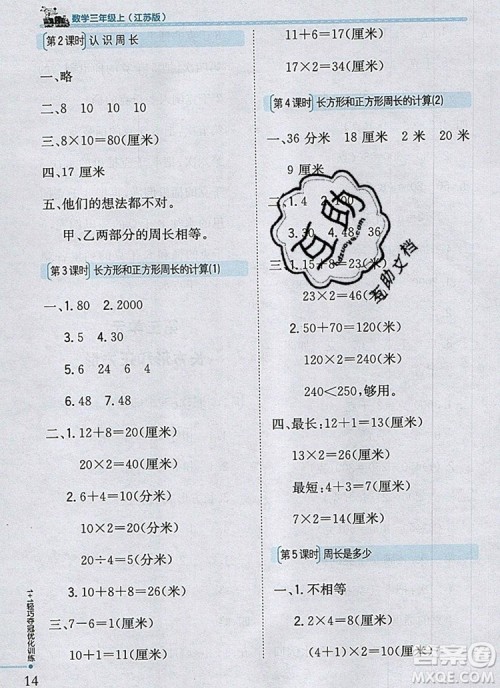 数学三年级上（江苏版）
第2课时 认识周长
一、略
二、8 10 10 10
三、8×10=80(厘米)
四、17厘米
五、他们的想法都不对。
甲、乙两部分的周长相等。
第3课时 长方形和正方形周长的计算(1)
一、1.90 2.2000
3.5 4.30
5.6 24 6 4
6.48 7.48
二、1.12+8=20(厘米)
20×2=40(厘米)
2.6+4=10(分米)
10×2=20(分米)
20÷4=5(分米)
3.10+8+8=26(米)
三、7-6=1(厘米)
10+1=11(厘米)
11+6=17(厘米)
17×2=34(厘米)
第4课时 长方形和正方形周长的计算(2)
一、36分米 18厘米 2米 20米
9厘米
二、1.4 2.100
3.30 4.48 36
三、1.15+8=23(米)
23×2=46(米)
2.50+70=120(米)
120×2=240(米)
240<250,够用。
四、最长:12+4=16(厘米)
16×2=32(厘米)
最短:4+3=7(厘米)
7×2=14(厘米)
第5课时 周长是多少
一、1.不相等
2.(4+1)×2=10(厘米)
互助
互助文档
1+1轻巧夺冠优化训练
14
答案圈
MXQE.COM